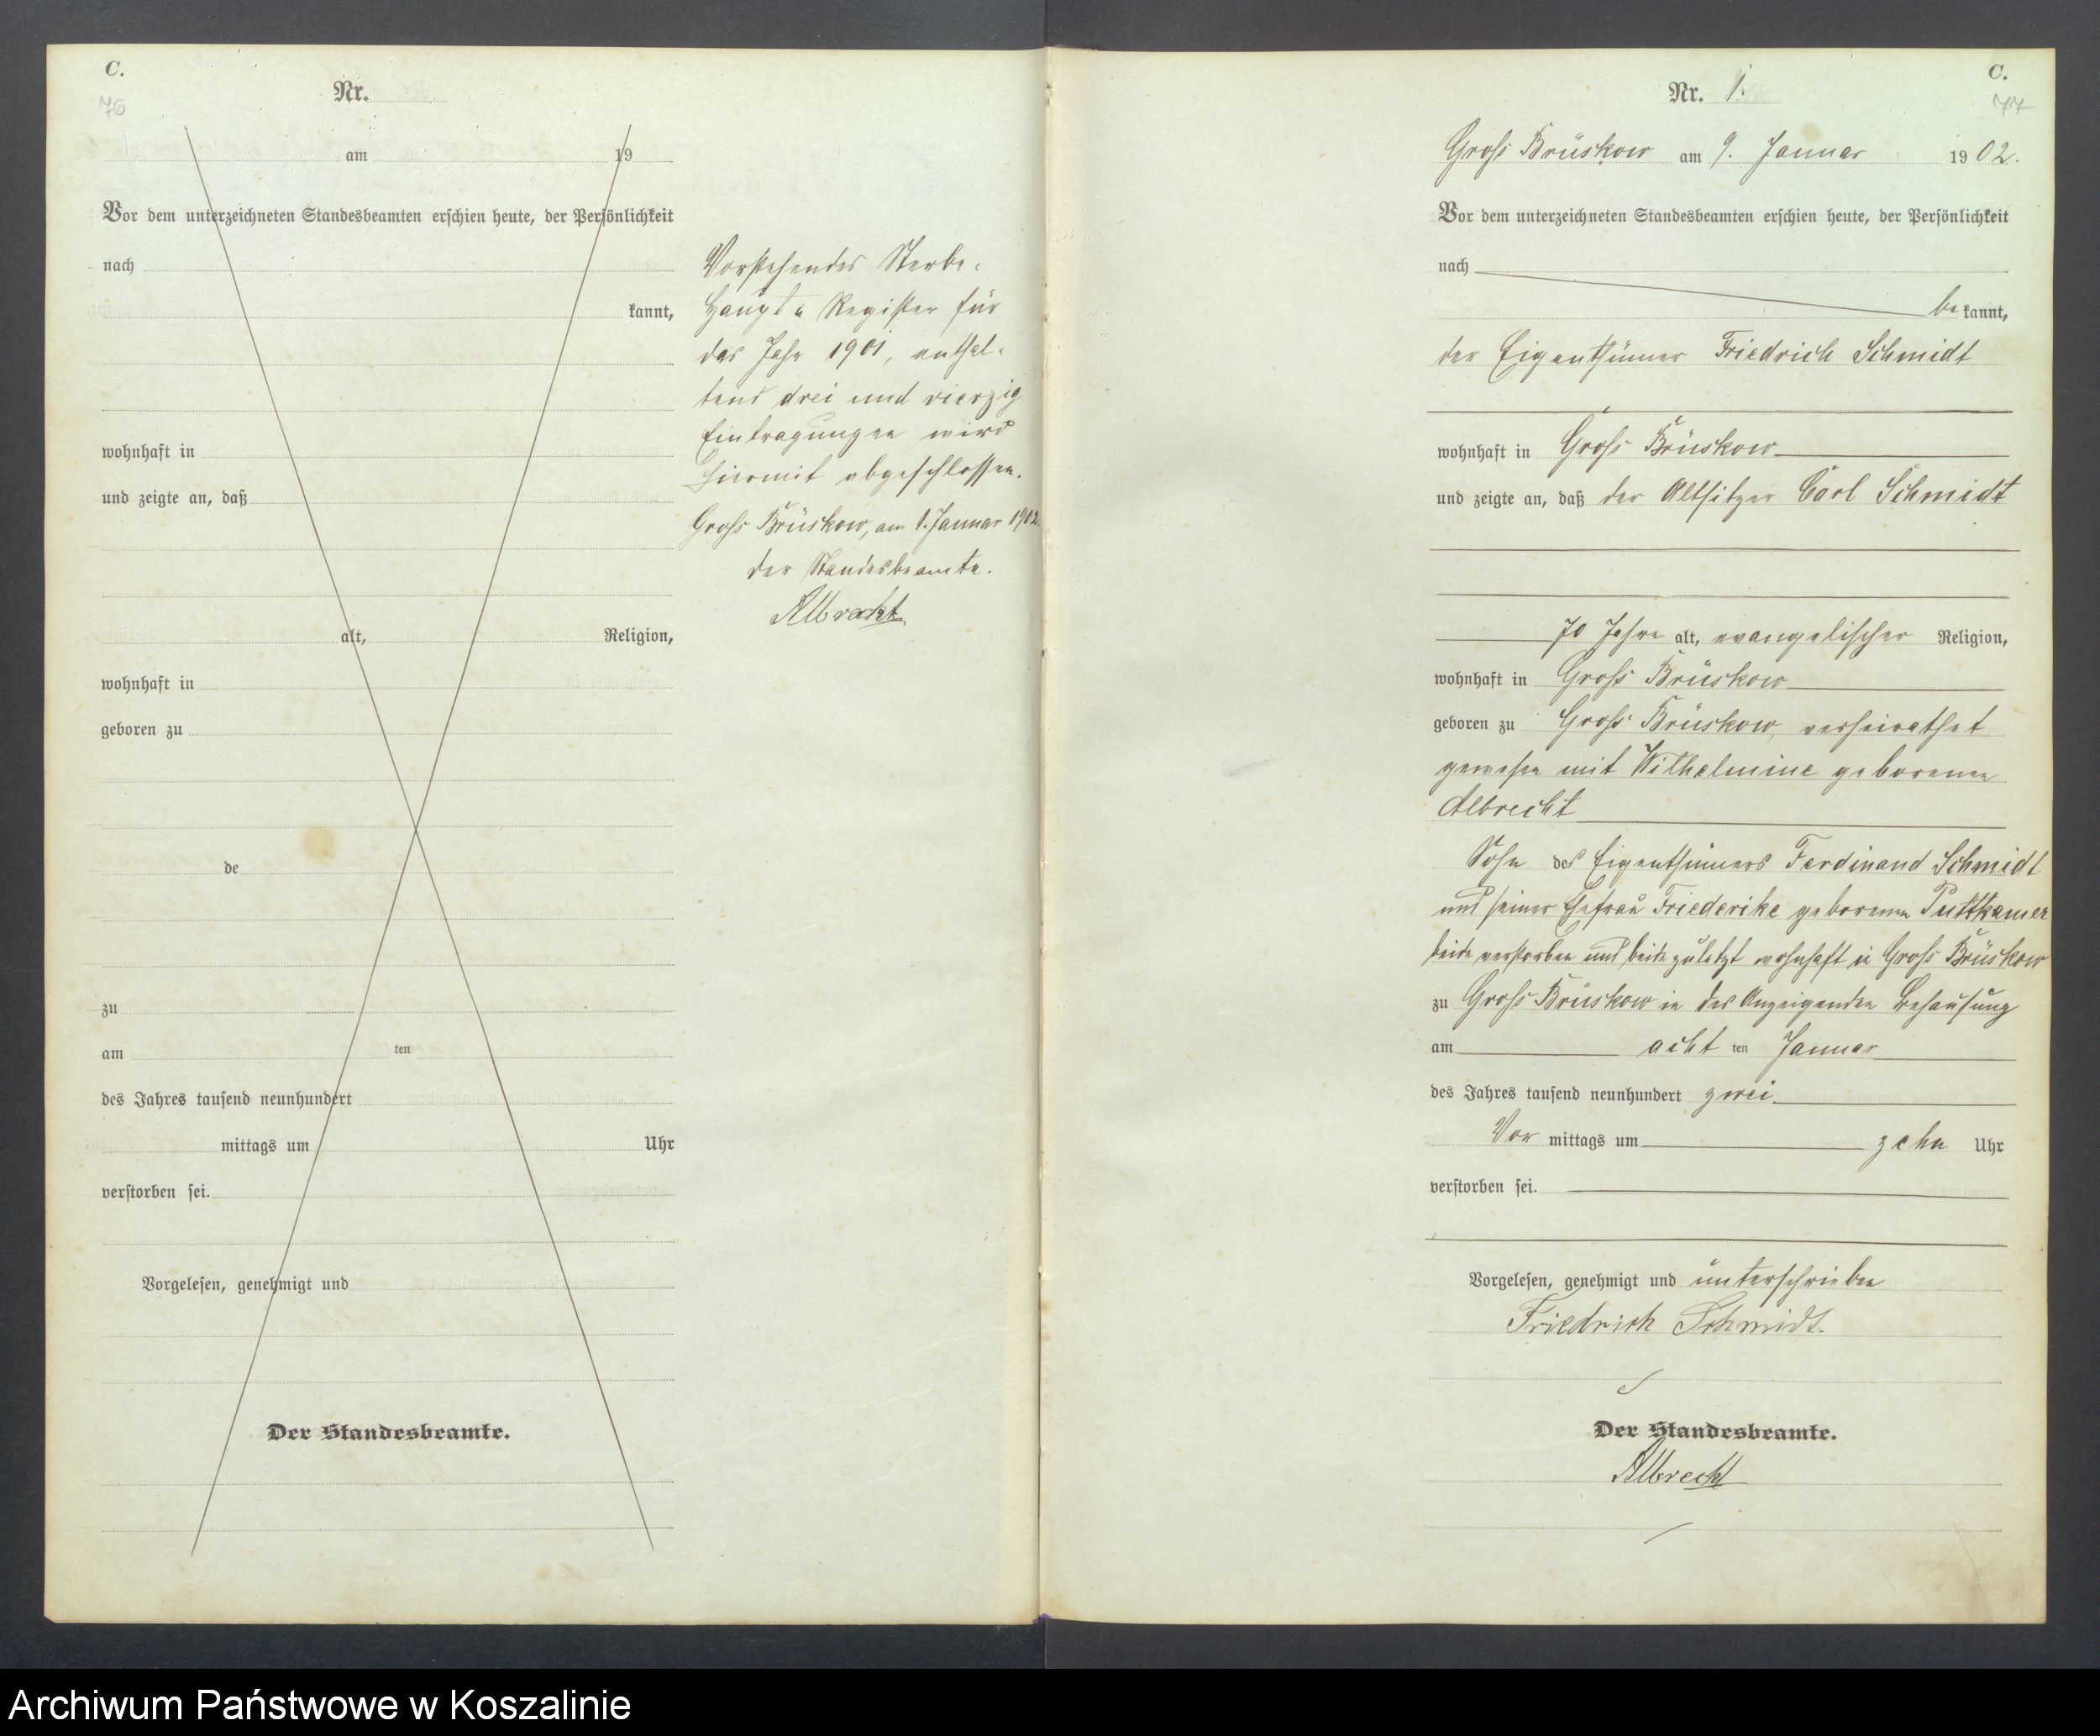 C.
76
Nr.
am 19
Vor dem unterzeichneten Standesbeamten erschien heute, der Persönlichkeit
nach
kannt,
wohnhaft in
und zeigte an, daß
alt, Religion,
wohnhaft in
geboren zu
de
zu
am ten
des Jahres tausend neunhundert
mittags um Uhr
verstorben sei.
Vorgelesen, genehmigt und
Der Standesbeamte.
Vorstehendes Sterbe-
Haupt-Register für
das Jahr 1901, enthal-
tend drei und vierzig
Eintragungen wird
hiermit abgeschlossen.
Groß Brüskow, am 1. Januar 1902.
der Standesbeamte.
Albrecht
C.
77
Nr. 1.
Groß Brüskow am 9. Januar 1902.
Vor dem unterzeichneten Standesbeamten erschien heute, der Persönlichkeit
nach
be kannt,
der Eigenthümer Friedrich Schmidt
wohnhaft in Groß Brüskow
und zeigte an, daß der Altsitzer Carl Schmidt
70 Jahre alt, evangelischer Religion,
wohnhaft in Groß Brüskow
geboren zu Groß Brüskow, verheirathet
gewesen mit Wilhelmine geborenen
Albrecht
Sohn des Eigenthümers Ferdinand Schmidt
und seiner Ehefrau Friederike geborenen Puttkamer
beide verstorben und beide zuletzt wohnhaft in Groß Brüskow
zu Groß Brüskow in des Anzeigenden Behausung
am acht ten Januar
des Jahres tausend neunhundert zwei
Vor mittags um zehn Uhr
verstorben sei.
Vorgelesen, genehmigt und unterschrieben
Friedrich Schmidt.
Der Standesbeamte.
Albrecht
Archiwum Państwowe w Koszalinie